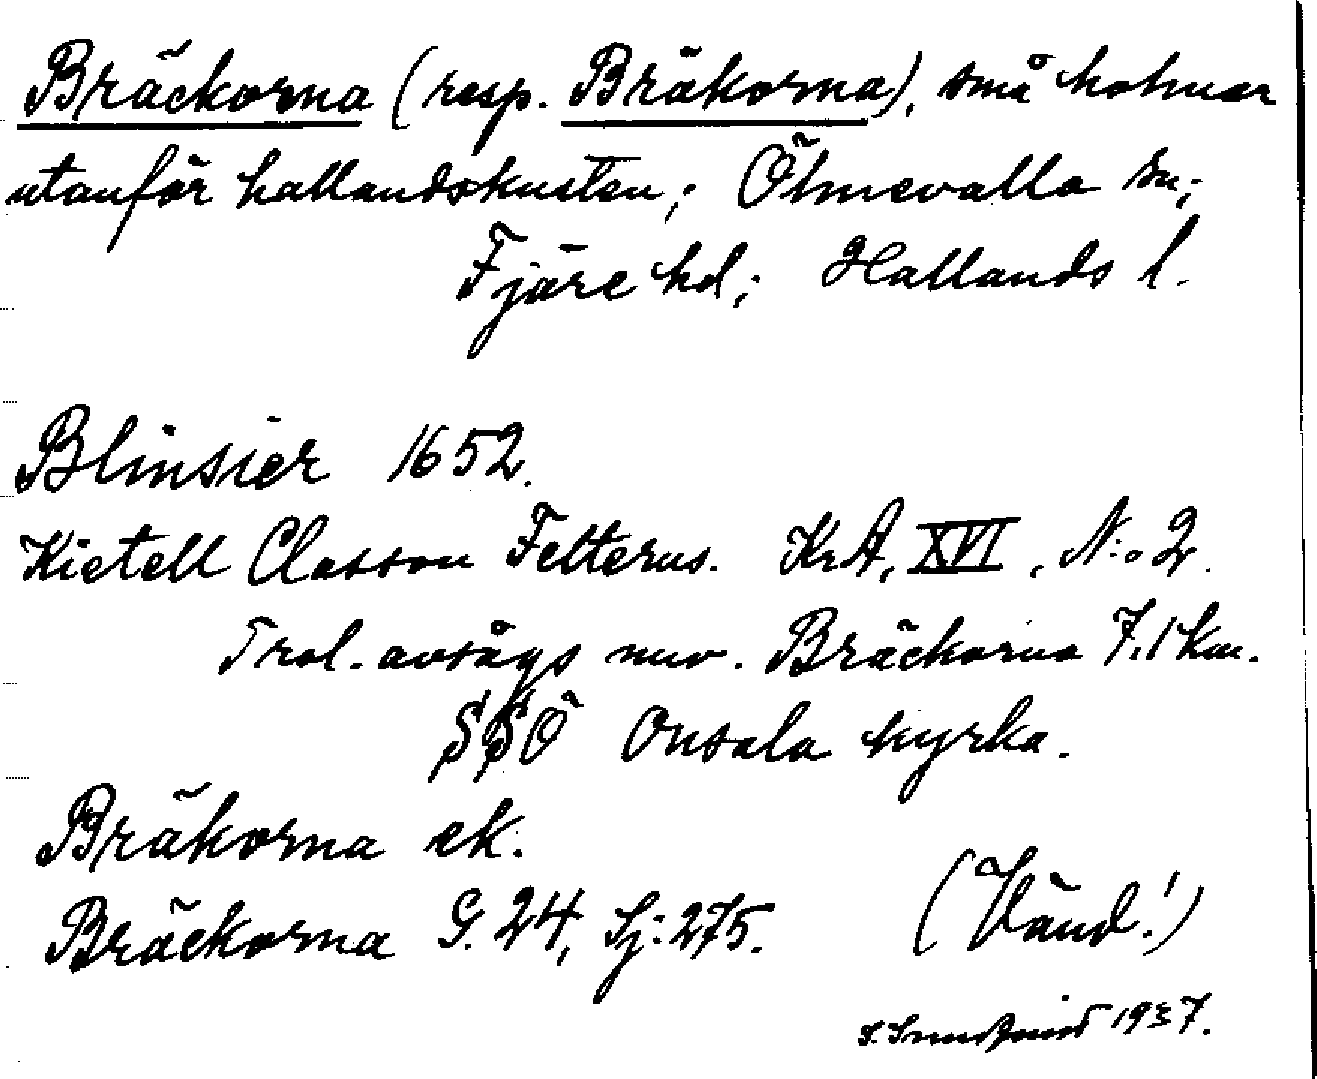 Bräckorna (resp. Bräkorna), små holmar
utanför hallandskusten; Ölmevalla sn;
Fjäre hd; Hallands l.
Blinsier 1652.
Kietell Classon Felterus. KrA, XVI, N:o 2.
Trol. avsågs nuv. Bräckorna 7,1 km.
SSÖ Onsala kyrka.
Bräkorna ek.
Bräckorna G. 24, Sj: 275.
(Vänd!)
1937.